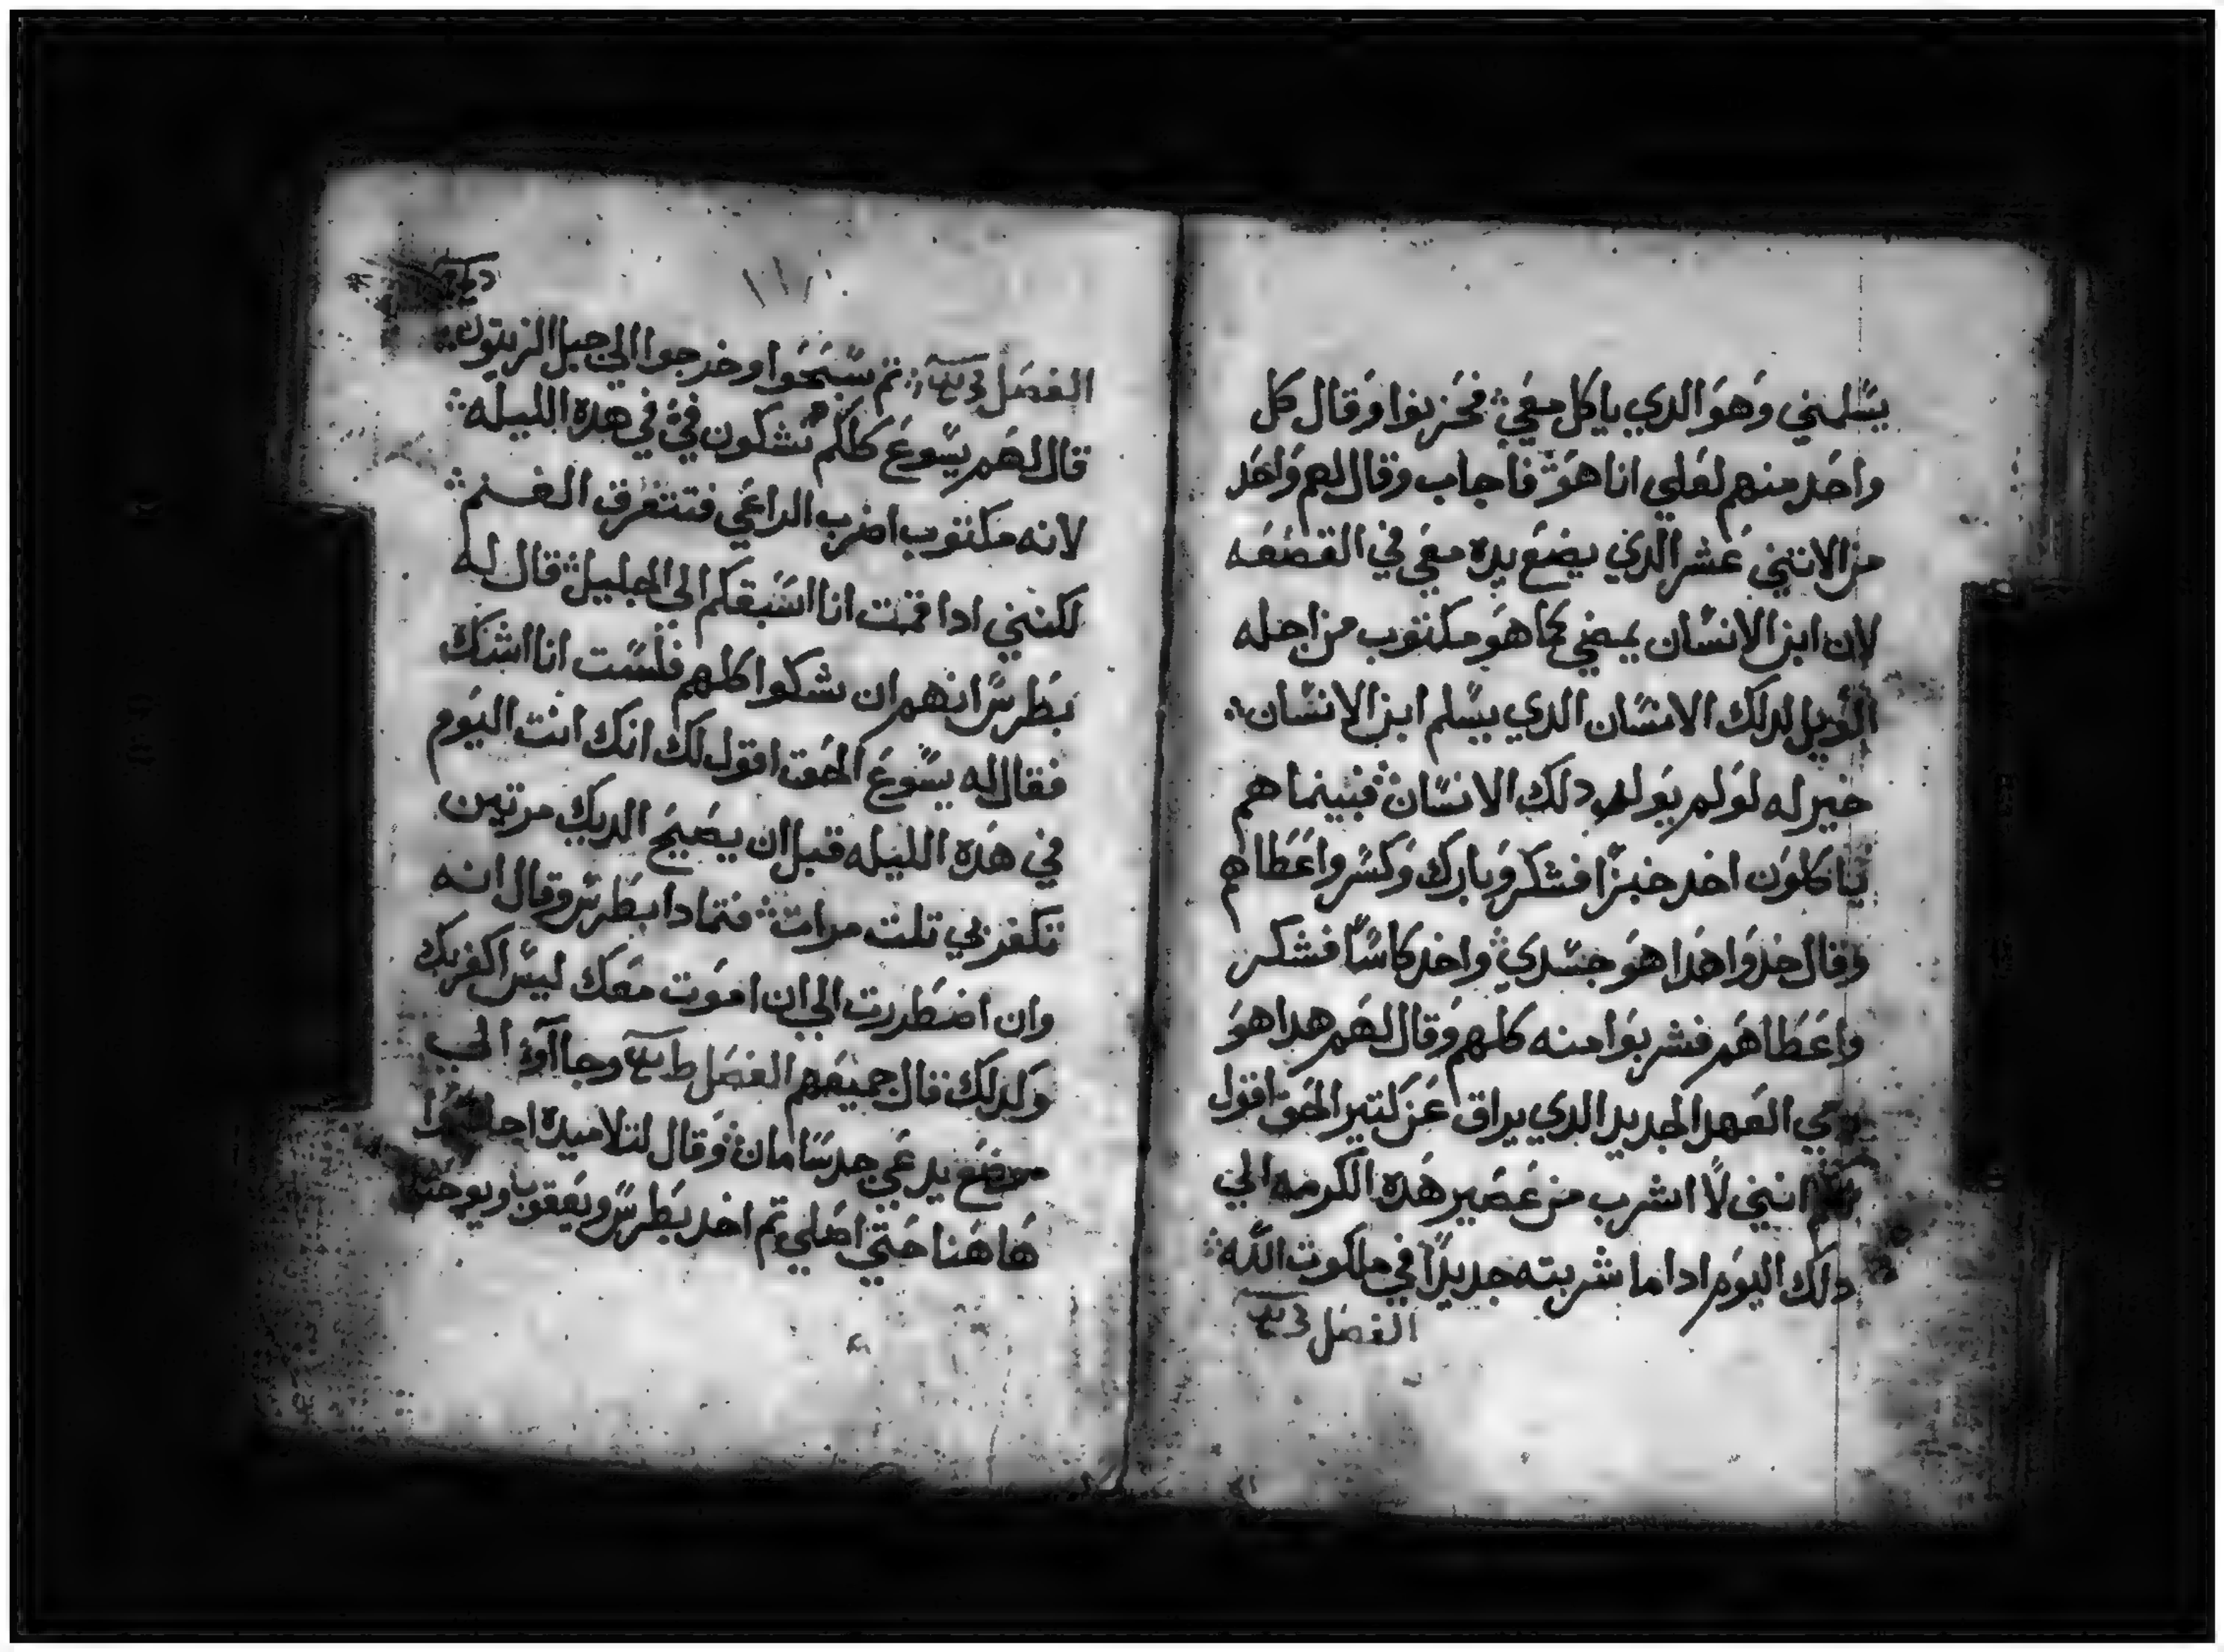 يسلمني وهو الدي ياكل معي فحزبوا وقال كل
واحد منهم لعلي انا هو فاجاب وقال لهم واحد
من الاثني عشر الدي يضع يده معي في القصعه
لان ابن الانسان يمضي كما هو مكتوب من اجله
الويل لدلك الانسان الدي يسلم ابن الانسان
خير له لو لم يولد دلك الانسان فبينما هم
ياكلون اخد خبزا فشكر وبارك وكسر واعطاهم
وقال خدوا هدا هو جسدي واخد كاسا فشكر
واعطاهم فشربوا منه كلهم وقال لهم هدا هو
دمي العهد الجديد الدي يراق عن كتير الحق اقول
لكم انني لا اشرب من عصير هده الكرمه الي
دلك اليوم ادا ما شربته جديدا في ملكوت الله
الفصل
الفصل تم سبحوا وخرجوا الي جبل الزيتون
قال لهم يسوع كلكم تشكون في في هده الليله
لانه مكتوب اضرب الراعي فتتفرق الغنم
لكنني ادا قمت انا اسبقكم الي الجليل قال له
بطرس انهم ان شكوا كلهم فلست انا اشك
فقال له يسوع الحق اقول لك انك انت اليوم
في هده الليله قبل ان يصيح الديك مرتين
تكفر بي تلت مرات فتمادا بطرس وقال انه
وان اضطررت الي ان اموت معك ليس اكفر بك
وكدلك قال جميعهم الفصل وجااوا الي
موضع يدعي جدسامان وقال لتلاميده اجلسوا
هاهنا حتي اصلي تم اخد بطرس ويعقوب ويوحنا